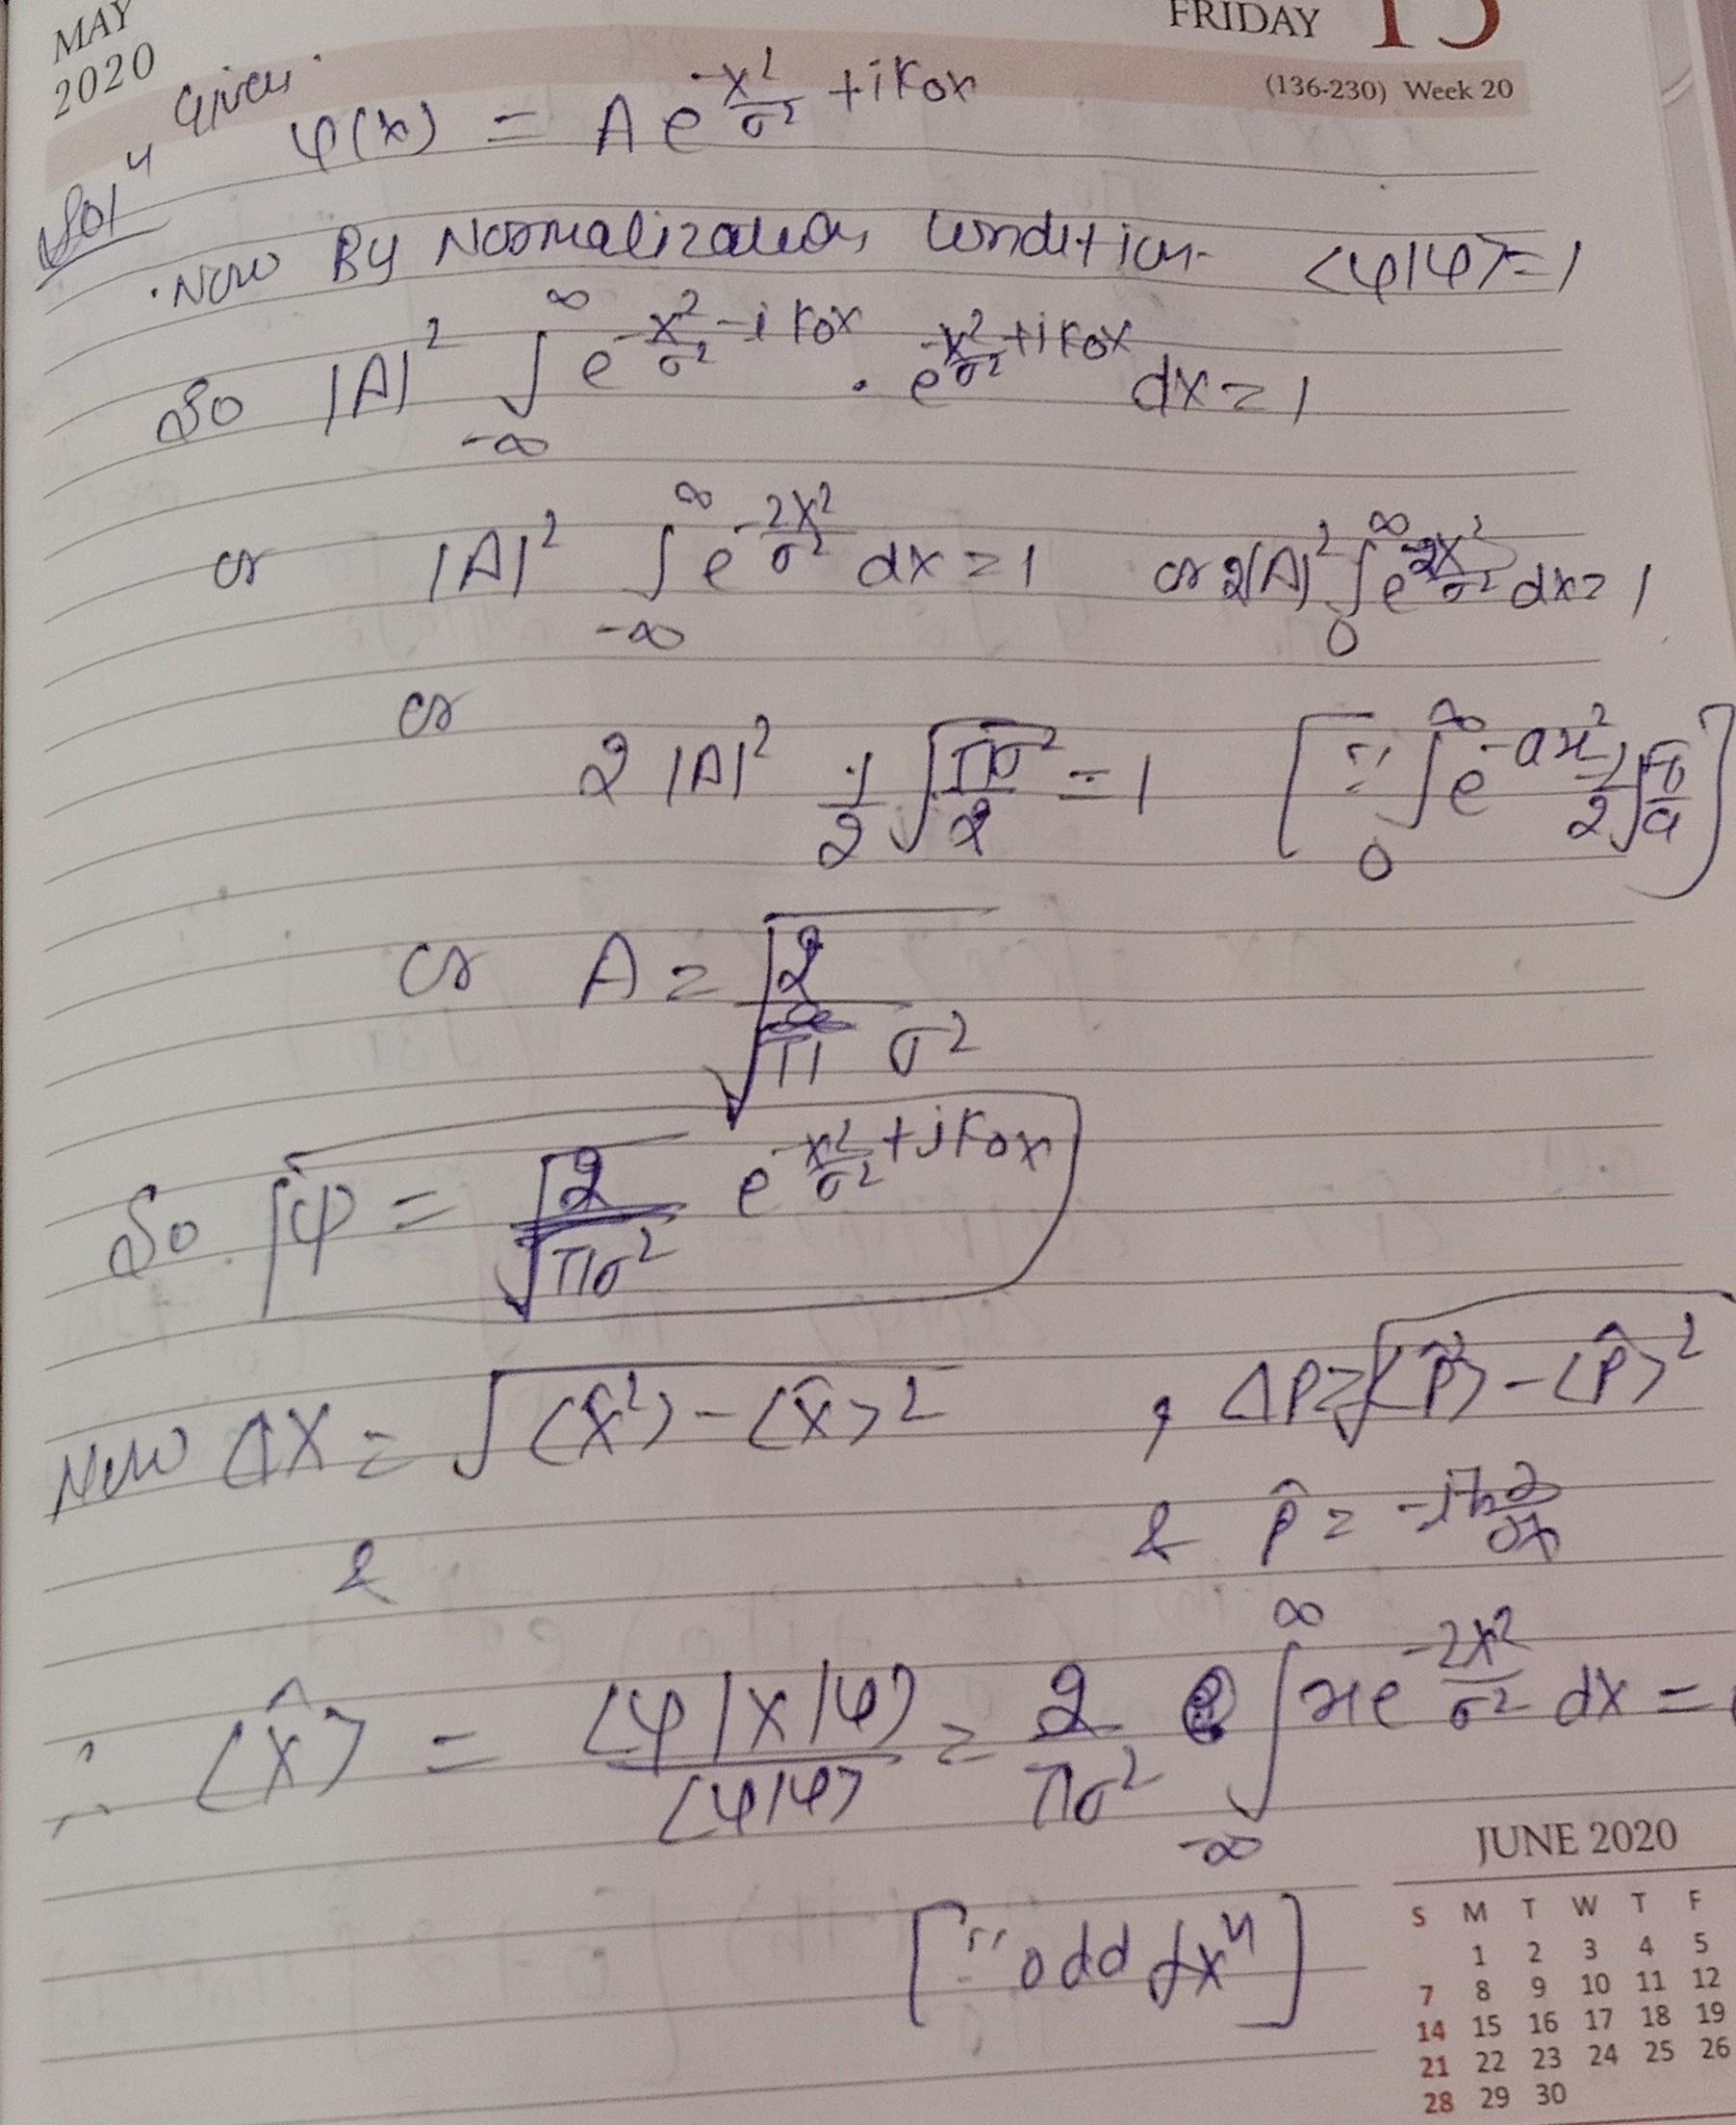 MAY
2020
FRIDAY 15
(136-230) Week 20
Solⁿ Given
φ(x) = A e^{-x²/σ² + ik₀x}
Now By Normalization Condition <φ|φ> = 1
So |A|² ∫_{-∞}^{∞} e^{-x²/σ² - ik₀x} . e^{-x²/σ² + ik₀x} dx = 1
or |A|² ∫_{-∞}^{∞} e^{-2x²/σ²} dx = 1 or 2|A|² ∫_{0}^{∞} e^{-2x²/σ²} dx = 1
or
2 |A|² 1/2 √(πσ²/2) = 1 [∵ ∫_{0}^{∞} e^{-ax²} 1/2 √(π/a)]
or A = √(√2/√π σ²)
So φ = √(√2/√πσ²) e^{-x²/σ² + ik₀x}
Now ΔX = √(<x̂²> - <x̂>²) , ΔP = √(<p̂²> - <p̂>²)
& & p̂ = -iħ ∂/∂x
∴ <x̂> = <φ|x|φ>/<φ|φ> = 2/πσ² ∫_{-∞}^{∞} x e^{-2x²/σ²} dx =
[∵ odd fxⁿ]
JUNE 2020
S M T W T F
1 2 3 4 5
7 8 9 10 11 12
14 15 16 17 18 19
21 22 23 24 25 26
28 29 30